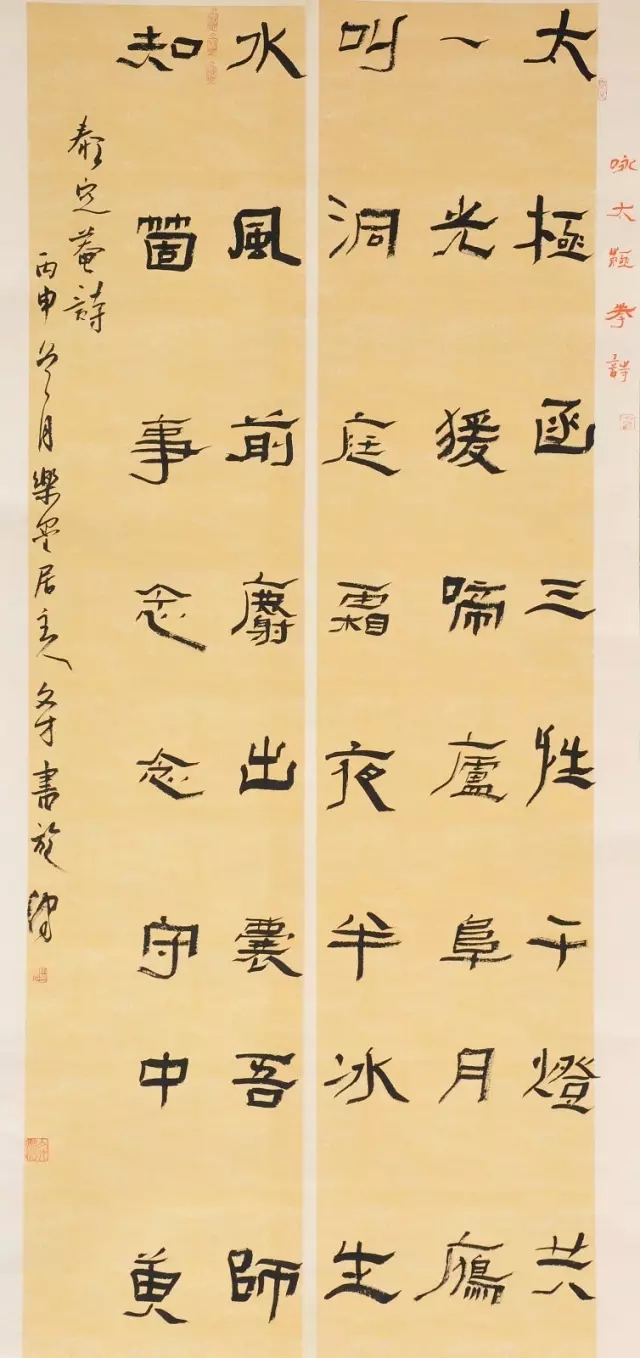 咏太極拳詩
太極函三性千燈共
一光猨啼廬阜月鴈
叫洞庭霜夜半冰生
水風前麝出囊吾師
知箇事念念守中黄
泰定菴詩
丙申冬月樂墨居主人文才書於